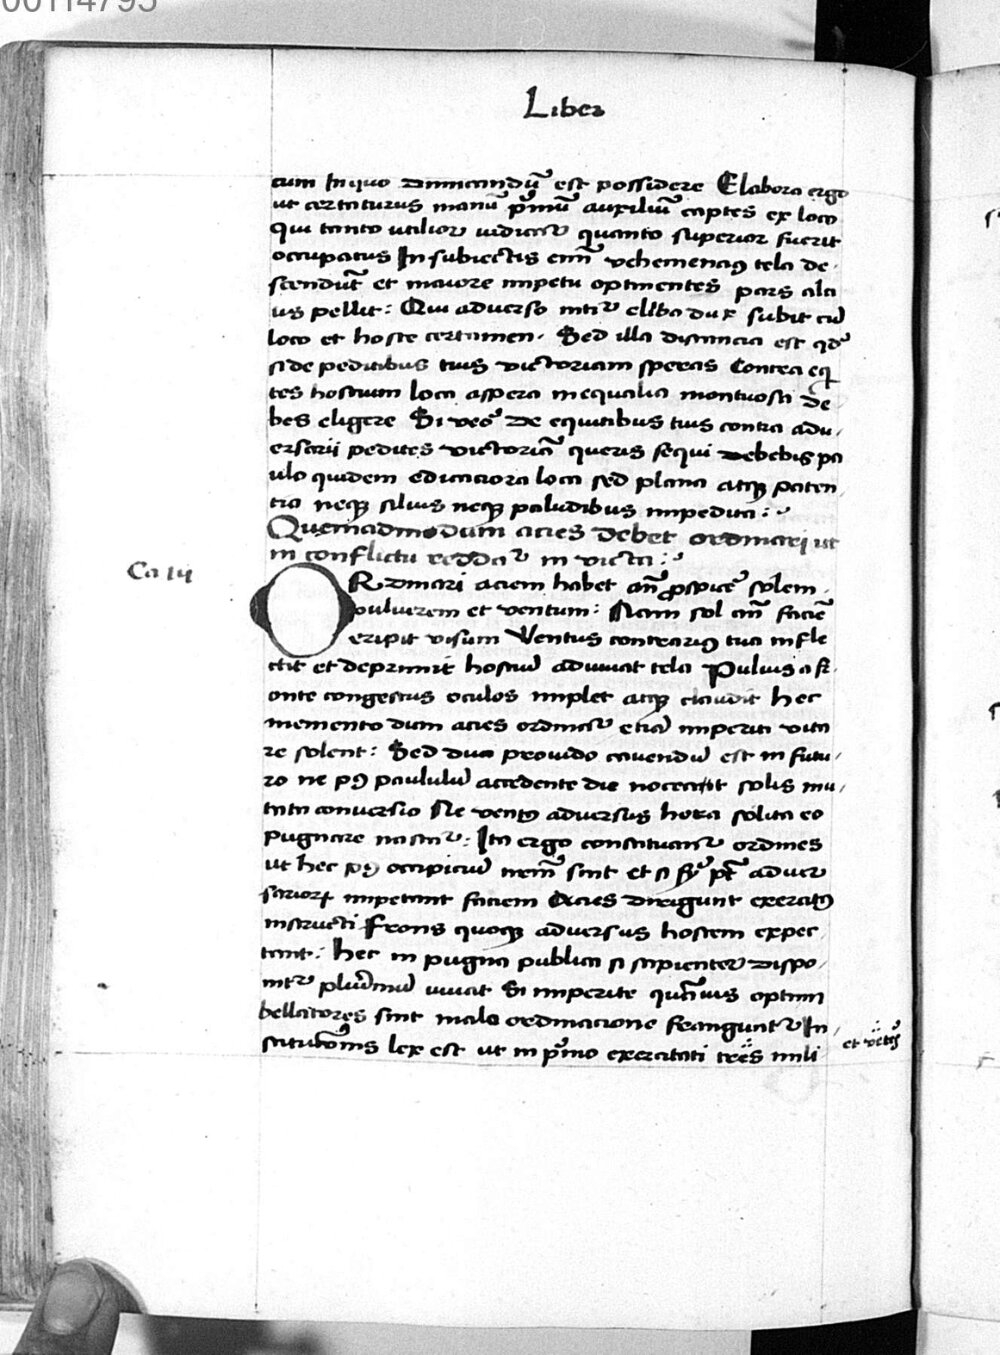 00114795
Liber
cum In quo dimicandū est possidere Elabora ergo
ut certaturus manū p̄mū auxiliū captes ex loco
Qui tanto utilior iudicat᷑ quanto superior fuerit
occupatus In subiectis enī vehemencius tela de-
scendūt et maiore impetu optinentes pars ali
us pellit: Qui adverso niti᷑ clibo dux subit cū
loco et hoste certamen. Sed illa distancia est qd᷑
si de peditibus tuis victoriam speras Contra eq
tes hostium loca aspera inequalia montuosa de
bes eligere Si vero De equitibus tuis contra adu-
ersarii pedites victoriā queris sequi debebis pa
ulo quidem edictaciora loca sed plana atqꝫ paten
tia neqꝫ siluis neqꝫ paludibus impedita:
Quemadmodum acies debet ordinari ut
in conflictu redda᷑ in victa:
Ca iii
ORdinari aciem habet an̄ pspice᷑ solem
pulverem et ventum: Nam sol an̄ faciē
eripit visum Ventus contrariꝰ tua infle
ctit et deprimit hostiū adiuvat tela Pulvis a fr
onte congestus oculos implet atqꝫ claudit hec
memento dum acies ordinat᷑ etiā imperiti vita
re solent: Sed duci provido cavendū est in futu-
ro ne pꝰ paululū accedente die noceant solis mu-
tata conversio Ne ventꝰ adversus hora solita eo
pugnare nascat᷑: Ita ergo constituant᷑ ordines
ut hec pꝰ occipiciū nr̄m sint et si fi᷑ pt̄ adver
sariorꝝ impetant faciem Acies dirigunt exercitꝰ
instructi Frons quoqꝫ adversus hostem expec-
tant: hec in pugna publica si sapienter dispo-
nit᷑ plurimū iuvat Si imperite quāvis optimi
bellatores sint mala ordinacione frangunt᷑ In-
stitucōnis lex est ut in p̄mo exercitati tres mili
et vetes